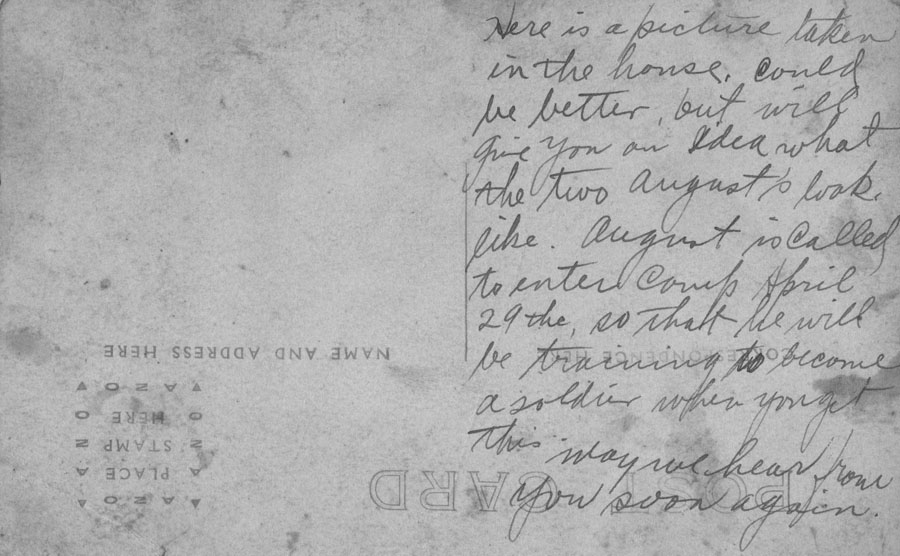 Here is a picture taken
in the house. Could
be better, but will
give you an Idea what
the two August's look
like. August is called
to enter Camp April
29the, so that he will
be training to become
a soldier when you get
this. May we hear from
you soon again.
POST CARD
CORRESPONDENCE HERE
NAME AND ADDRESS HERE
AZO
PLACE
STAMP
HERE
AZO